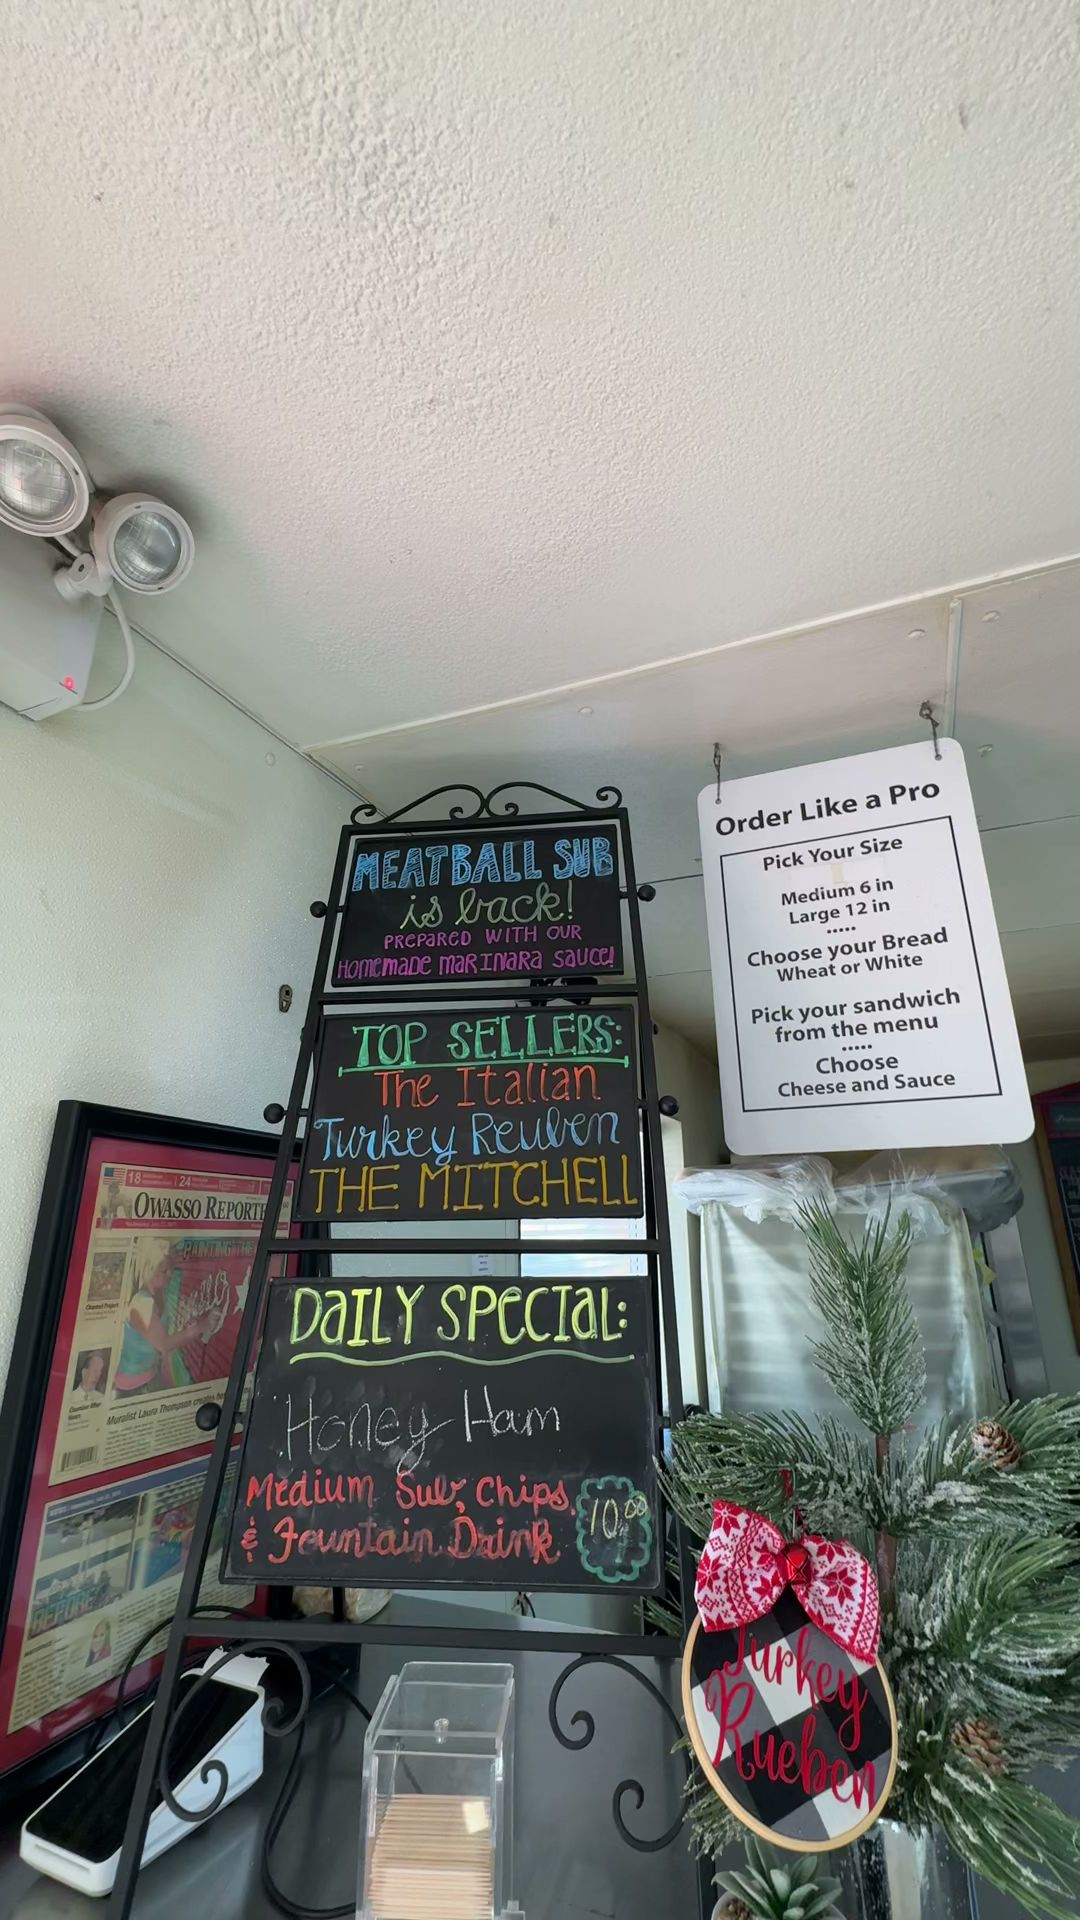 MEATBALL SUB
is back!
PREPARED WITH OUR
HOMEMADE MARINARA SAUCE!
TOP SELLERS:
The Italian
Turkey Reuben
THE MITCHELL
DAILY SPECIAL:
Honey Ham
Medium Sub, Chips,
& Fountain Drink
10.00
Order Like a Pro
Pick Your Size
Medium 6 in
Large 12 in
Choose your Bread
Wheat or White
Pick your sandwich
from the menu
Choose
Cheese and Sauce
18
24
OWASSO REPORTER
PAINTING THE
Channel Project
Chamber After
Hours
Muralist Laura Thompson creates
BEFORE
Turkey
Rueben